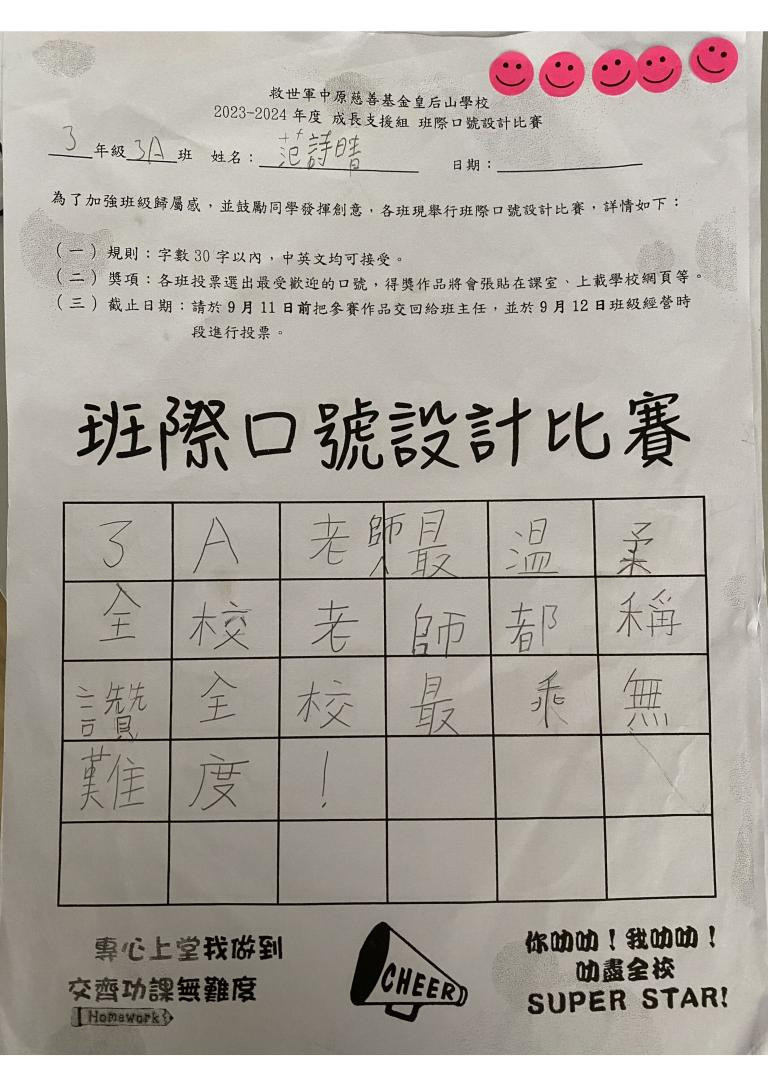 救世軍中原慈善基金皇后山學校
2023-2024 年度 成長支援組 班際口號設計比賽
3 年級 3A 班 姓名：范詩晴 日期：
為了加強班級歸屬感，並鼓勵同學發揮創意，各班現舉行班際口號設計比賽，詳情如下：
（一）規則：字數 30 字以內，中英文均可接受。
（二）獎項：各班投票選出最受歡迎的口號，得獎作品將會張貼在課室、上載學校網頁等。
（三）截止日期：請於 9 月 11 日前把參賽作品交回給班主任，並於 9 月 12 日班級經營時
段進行投票。
班際口號設計比賽
3A老師最溫柔
全校老師都稱
讚全校最乖無
難度！
專心上堂我做到
交齊功課無難度
Homework
CHEER
你叻叻！我叻叻！
叻盡全校
SUPER STAR!